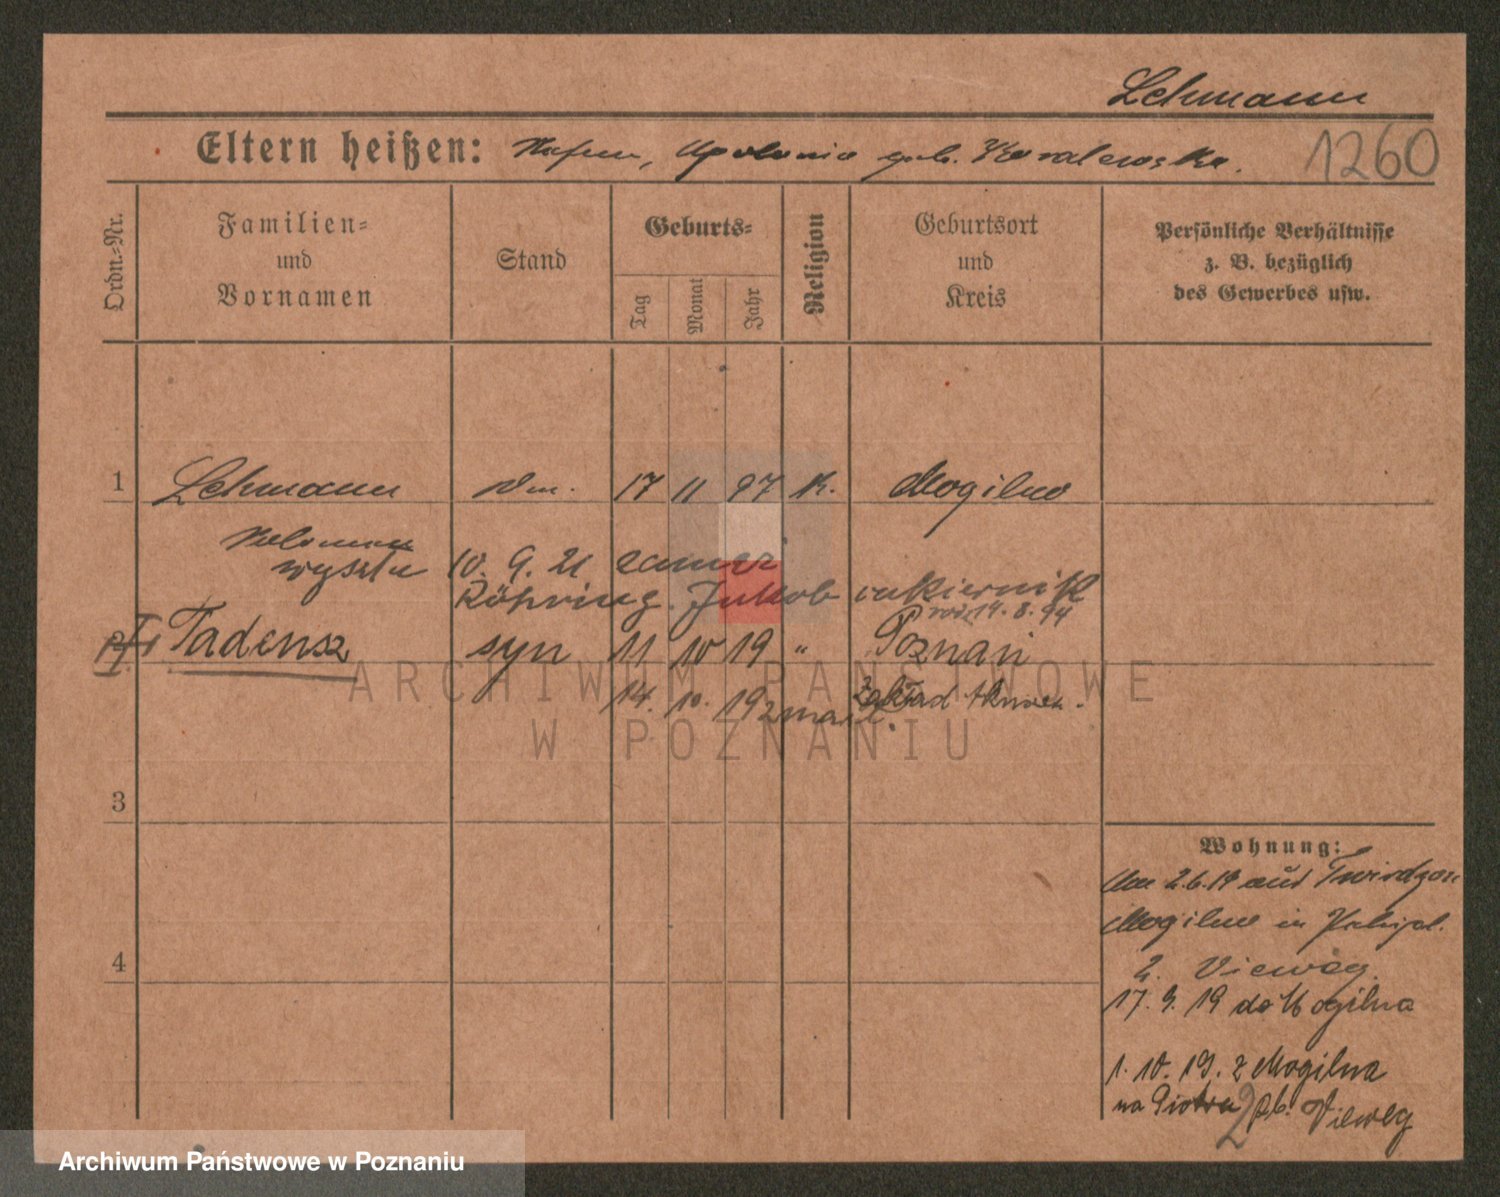 Lehmann
Eltern heißen: Apolonia geb. Kowalewska.
1260
Ordn.=Nr.
Familien=
und
Vornamen
Stand
Geburts=
Tag
Monat
Jahr
Religion
Geburtsort
und
Kreis
Persönliche Verhältnisse
z. B. bezüglich
des Gewerbes usw.
1 Lehmann 17 11 97 K. Mogilno
wyszła 10. 9. 21
Röhring. Jakob cukiernik
14. 8. 94
Tadeusz syn 11 10 19 " Poznań
14. 10. 19 zmarł. Zakład
3
4
Wohnung:
2.6.19 aus
Mogilno in
2. Vieweg.
17. 9. 19 do Mogilna
1. 10. 19. z Mogilna
na Piotra 2 Vieweg
ARCHIWUM PAŃSTWOWE
W POZNANIU
Archiwum Państwowe w Poznaniu